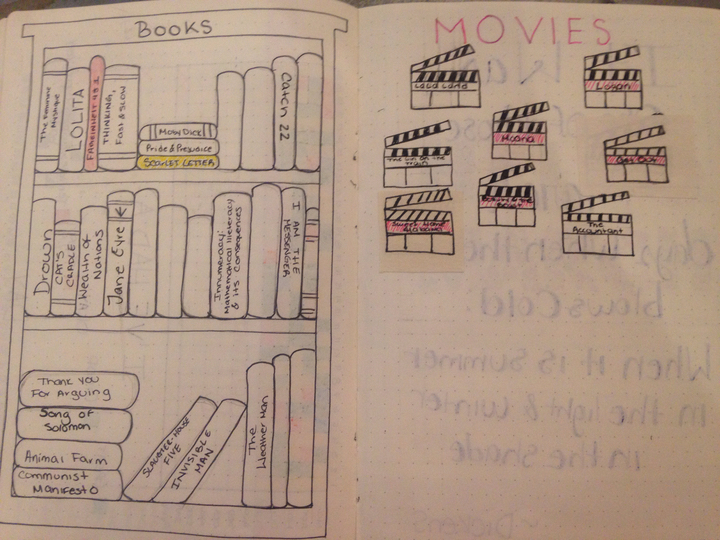 BOOKS
The Feminine
Mystique
LOLITA
FAHRENHEIT 451
THINKING,
Fast & SLOW
Moby Dick
Pride & Prejudice
SCARLET LETTER
Catch 22
Drown
CAT'S
CRADLE
Wealth of
Nations
Jane Eyre
Innumeracy:
Mathematical Illiteracy
& its Consequences
I AM THE
MESSENGER
Thank you
For Arguing
Song of
Solomon
Animal Farm
Communist
Manifesto
SLAUGHTER-HOUSE
FIVE
INVISIBLE
MAN
The
Weather Man
MOVIES
Lala Land
Logan
Moana
The Girl on the
Train
Get Out
Sweet Home
Alabama
The
Accountant
days when the
blows cold
When it is Summer
in the light & winter
in the shade